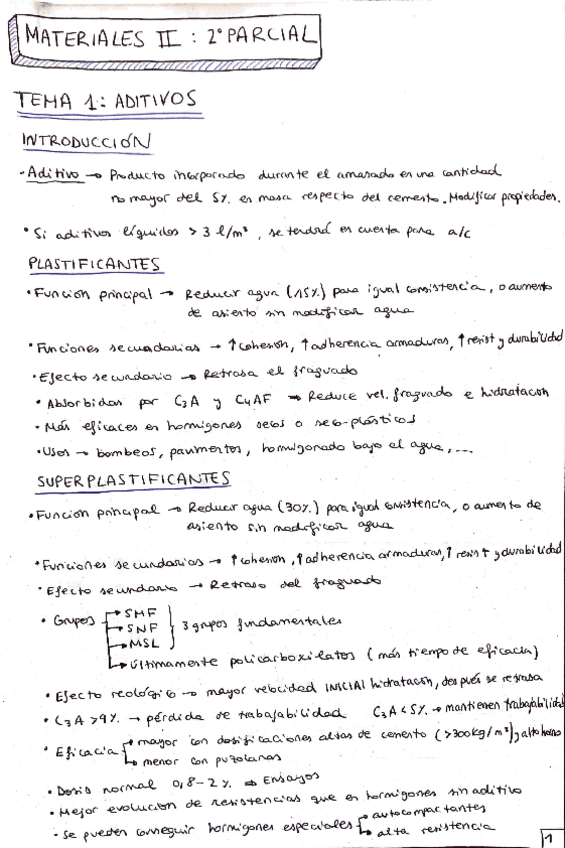 MATERIALES II : 2º PARCIAL
TEMA 1: ADITIVOS
INTRODUCCIÓN
· Aditivo → Producto incorporado durante el amasado en una cantidad
no mayor del 5% en masa respecto del cemento. Modificar propiedades.
· Si aditivos líquidos > 3 l/m³, se tendrá en cuenta para a/c
PLASTIFICANTES
· Función principal → Reducir agua (15%) para igual consistencia, o aumento
de asiento sin modificar agua
· Funciones secundarias → ↑cohesión, ↑adherencia armaduras, ↑resist y durabilidad
· Efecto secundario → Retrasa el fraguado
· Absorbidos por C₃A y C₄AF → Reduce vel. fraguado e hidratación
· Más eficaces en hormigones secos o seco-plásticos
· Usos → bombeos, pavimentos, hormigonado bajo el agua, ...
SUPERPLASTIFICANTES
· Función principal → Reducir agua (30%) para igual consistencia, o aumento de
asiento sin modificar agua
· Funciones secundarias → ↑cohesión, ↑adherencia armaduras, ↑ resist y durabilidad
· Efecto secundario → Retraso del fraguado
· Grupos → SMF
→ SNF
→ MSL
} 3 grupos fundamentales
→ Últimamente policarboxilatos (más tiempo de eficacia)
· Efecto reológico → mayor velocidad INICIAL hidratación, después se retrasa
· C₃A > 9% → pérdida de trabajabilidad C₃A < 5% → mantienen trabajabilidad
· Eficacia → mayor con dosificaciones altas de cemento (>300kg/m³) y alto horno
→ menor con puzolanas
· Dosis normal 0,8-2% → Ensayos
· Mejor evolución de resistencias que en hormigones sin aditivo
· Se pueden conseguir hormigones especiales → autocompactantes
→ alta resistencia
1